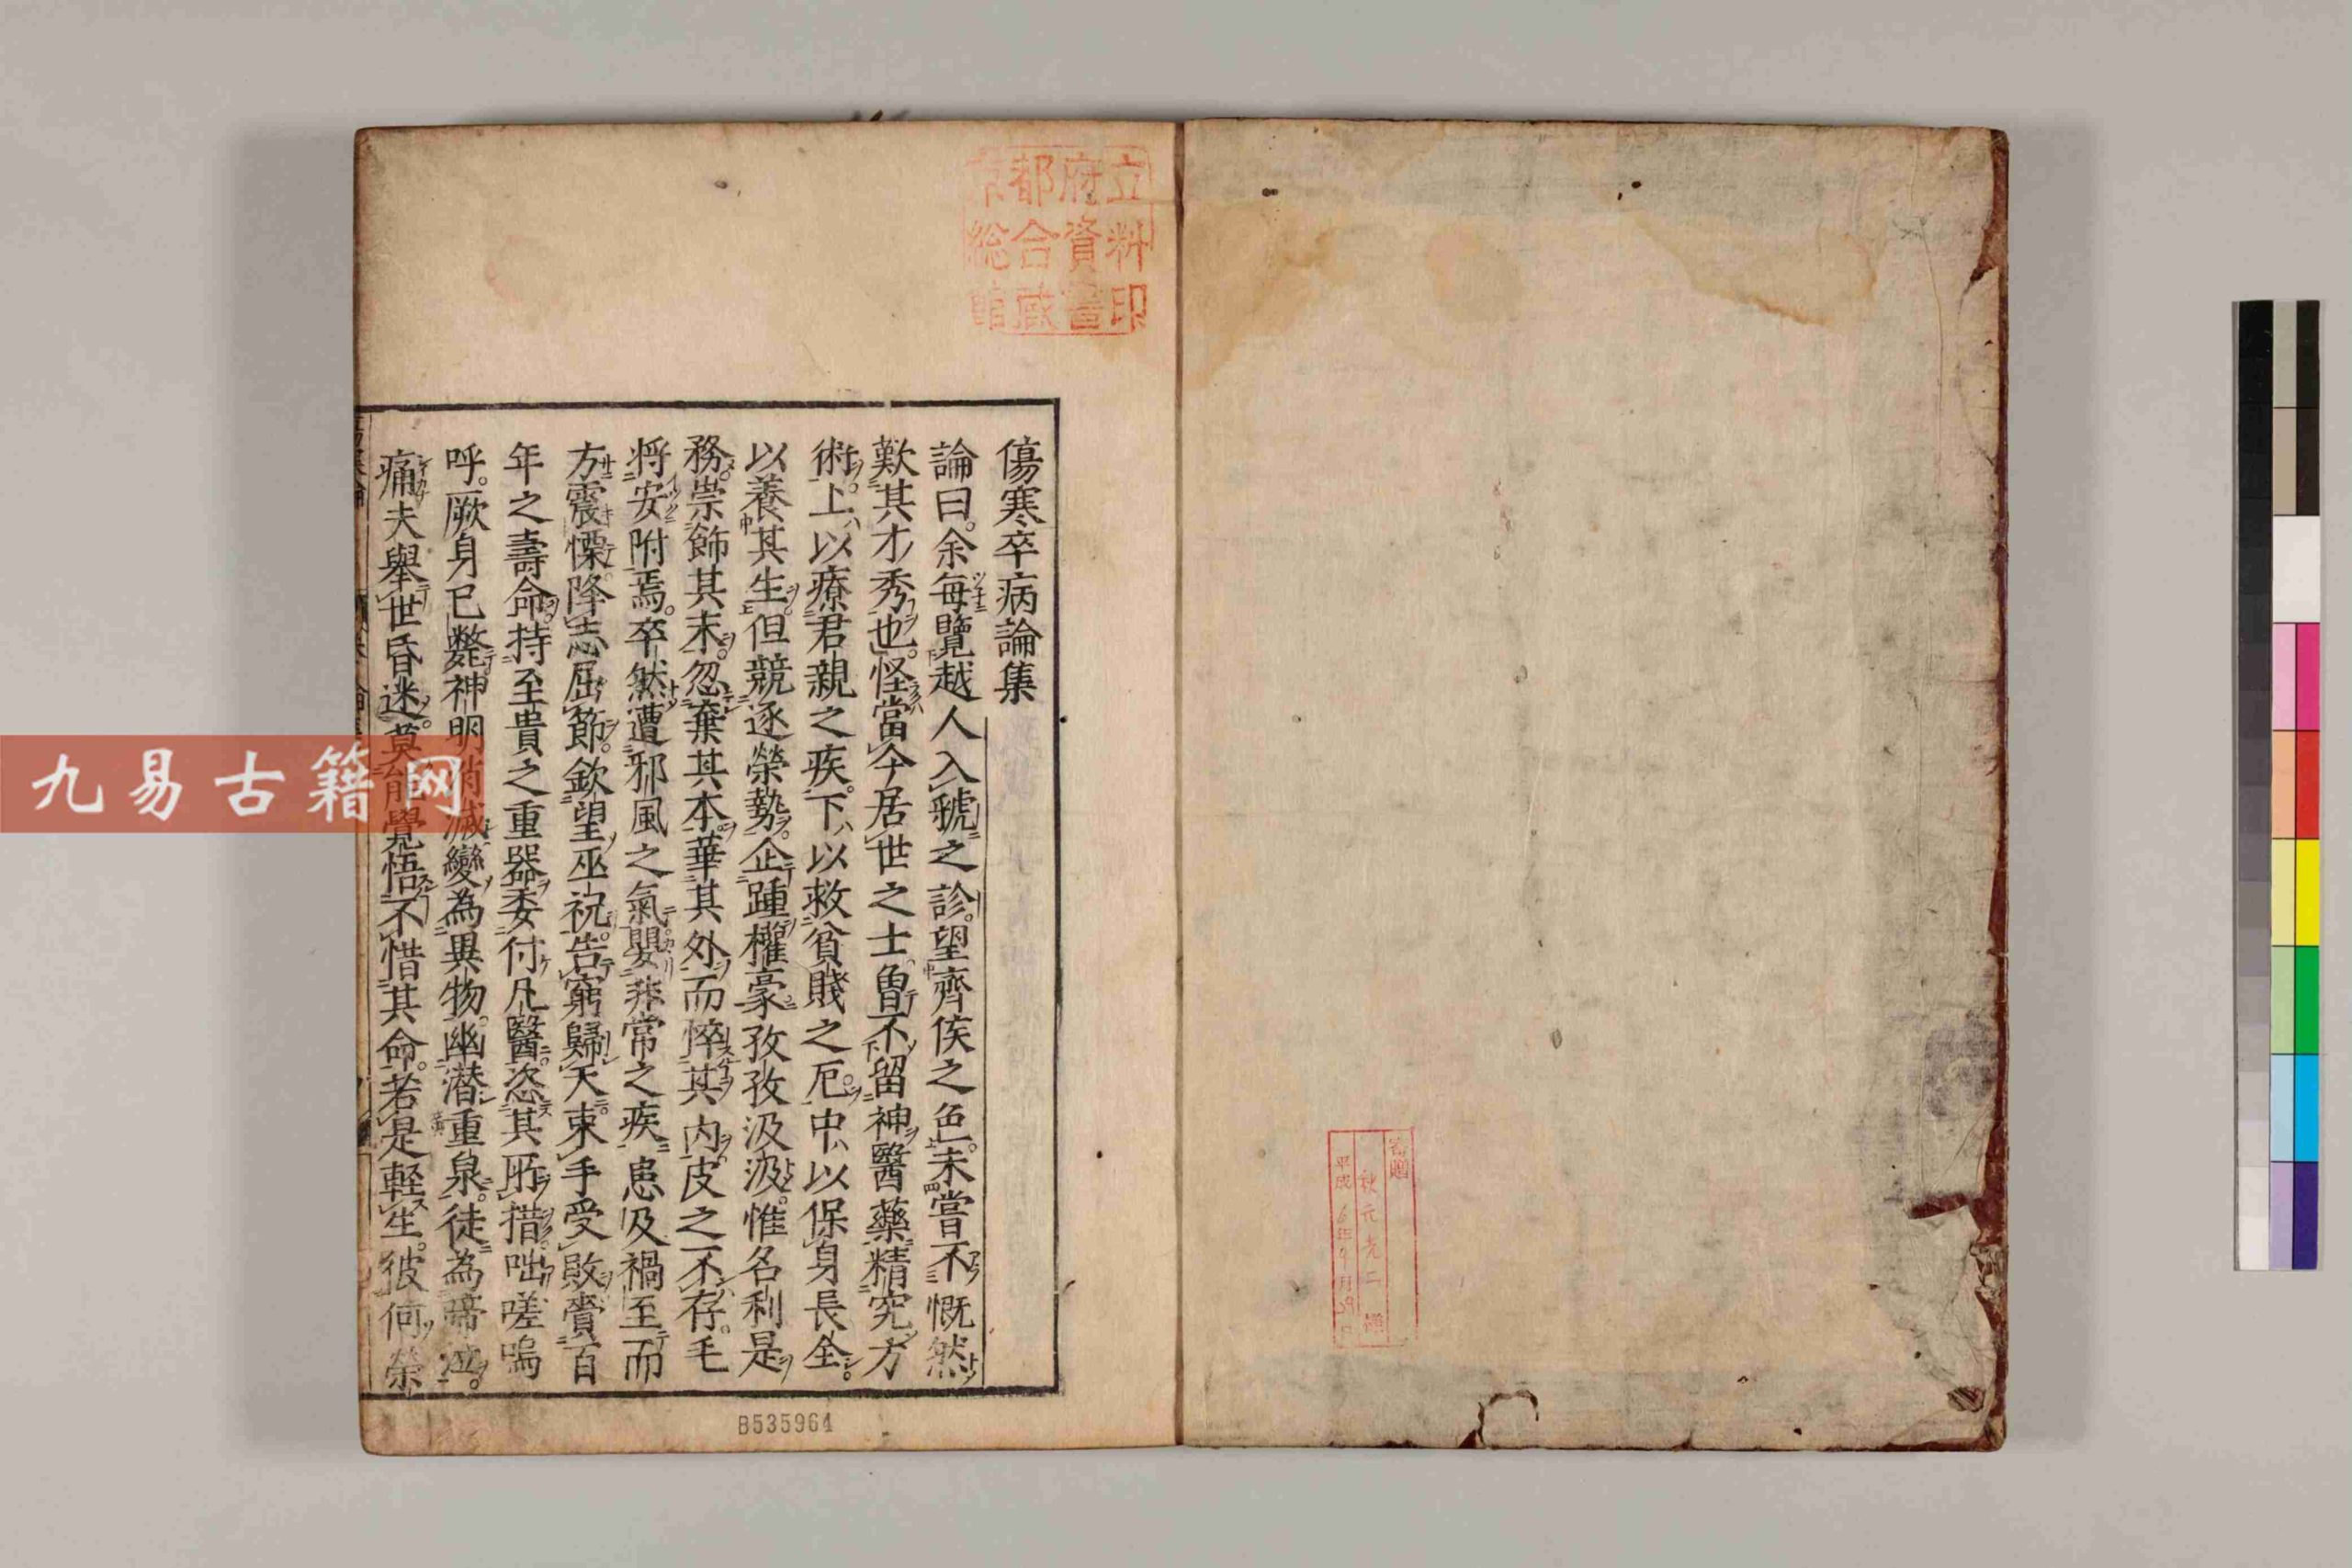 傷寒卒病論集
論曰。余每覽越人入虢之診。望齊侯之色。未嘗不慨然
歎其才秀也。怪當今居世之士。曾不留神醫藥。精究方
術。上以療君親之疾。下以救貧賤之厄。中以保身長全。
以養其生。但競逐榮勢。企踵權豪。孜孜汲汲。惟名利是
務。崇飾其末。忽棄其本。華其外而悴其內。皮之不存。毛
將安附焉。卒然遭邪風之氣。嬰非常之疾。患及禍至。而
方震慄。降志屈節。欽望巫祝。告窮歸天。束手受敗。賫百
年之壽命。持至貴之重器。委付凡醫。恣其所措。咄嗟嗚
呼。厥身已斃。神明消滅。變為異物。幽潜重泉。徒為啼泣。
痛夫舉世昏迷。莫能覺悟。不惜其命。若是輕生。彼何榮
京都府立
総合資料
館蔵書印
B535964
寄贈
平成6年9月29日
九易古籍网